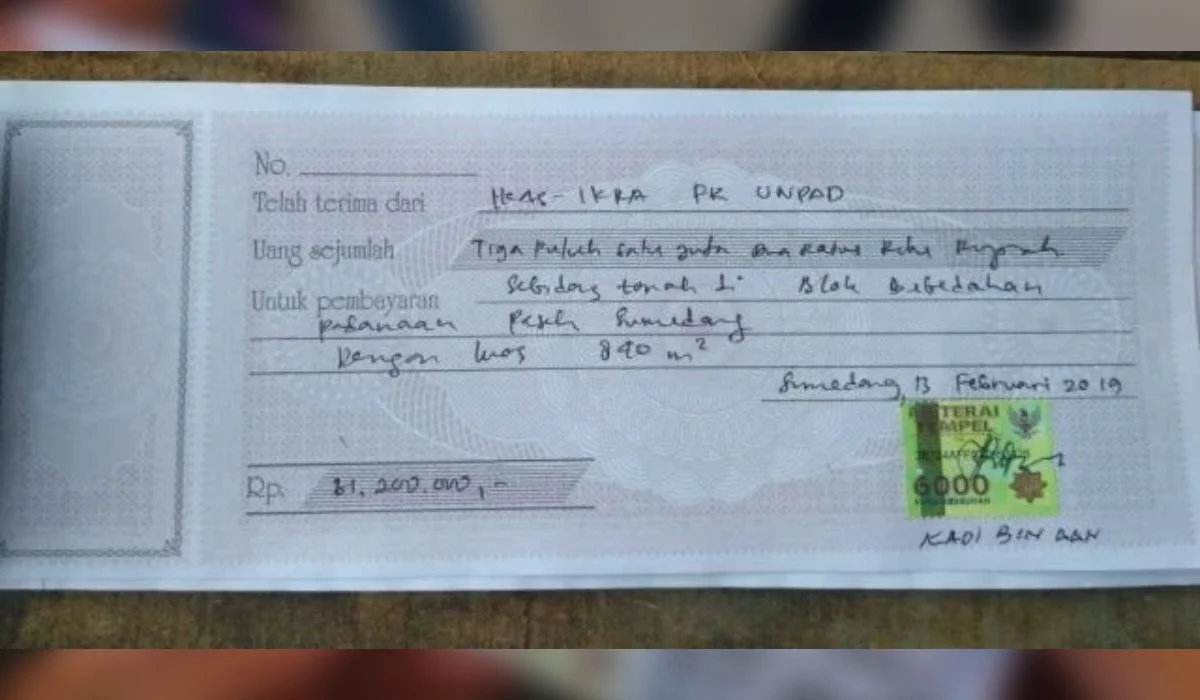 No.
Telah terima dari IKAS-IKRA PK UNPAD
Uang sejumlah Tiga Puluh satu juta dua Ratus Ribu Rupiah
Untuk pembayaran Sebidang tanah di Blok Bebedahan
Paseh Sumedang
Dengan luas 840 m²
Sumedang, 13 Februari 2019
METERAI
TEMPEL
6000
Rp. 31.200.000,-
KADI BIN AAN